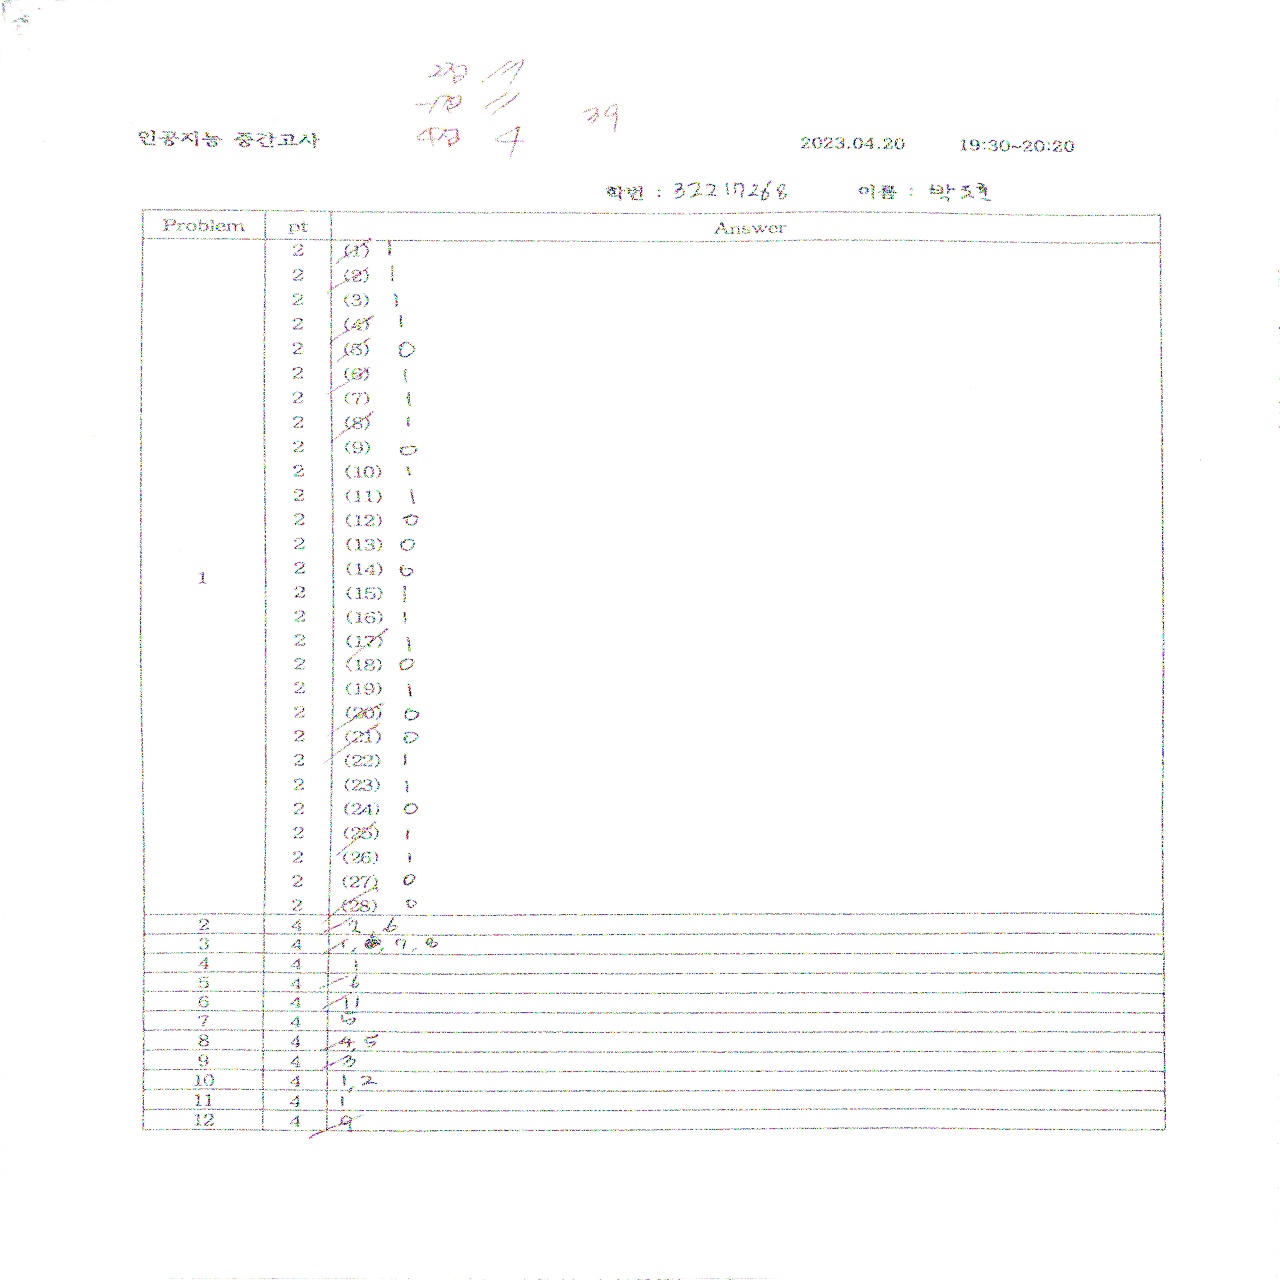 2점 11
-1점 11
4점 4
39
인공지능 중간고사 2023.04.20 19:30~20:20
학번 : 32217268 이름 : 박
Problem pt Answer
1
2 (1) 1
2 (2) 1
2 (3) 1
2 (4) 1
2 (5) 0
2 (6) 1
2 (7) 1
2 (8) 1
2 (9) 0
2 (10) 1
2 (11) 1
2 (12) 0
2 (13) 0
2 (14) 0
2 (15) 1
2 (16) 1
2 (17) 1
2 (18) 0
2 (19) 1
2 (20) 0
2 (21) 0
2 (22) 1
2 (23) 1
2 (24) 0
2 (25) 1
2 (26) 1
2 (27) 0
2 (28) 0
2 4 2, 6
3 4 1, 7, 8
4 4 1
5 4 6
6 4 11
7 4
8 4 4, 5
9 4 3
10 4 1, 2
11 4 1
12 4 9